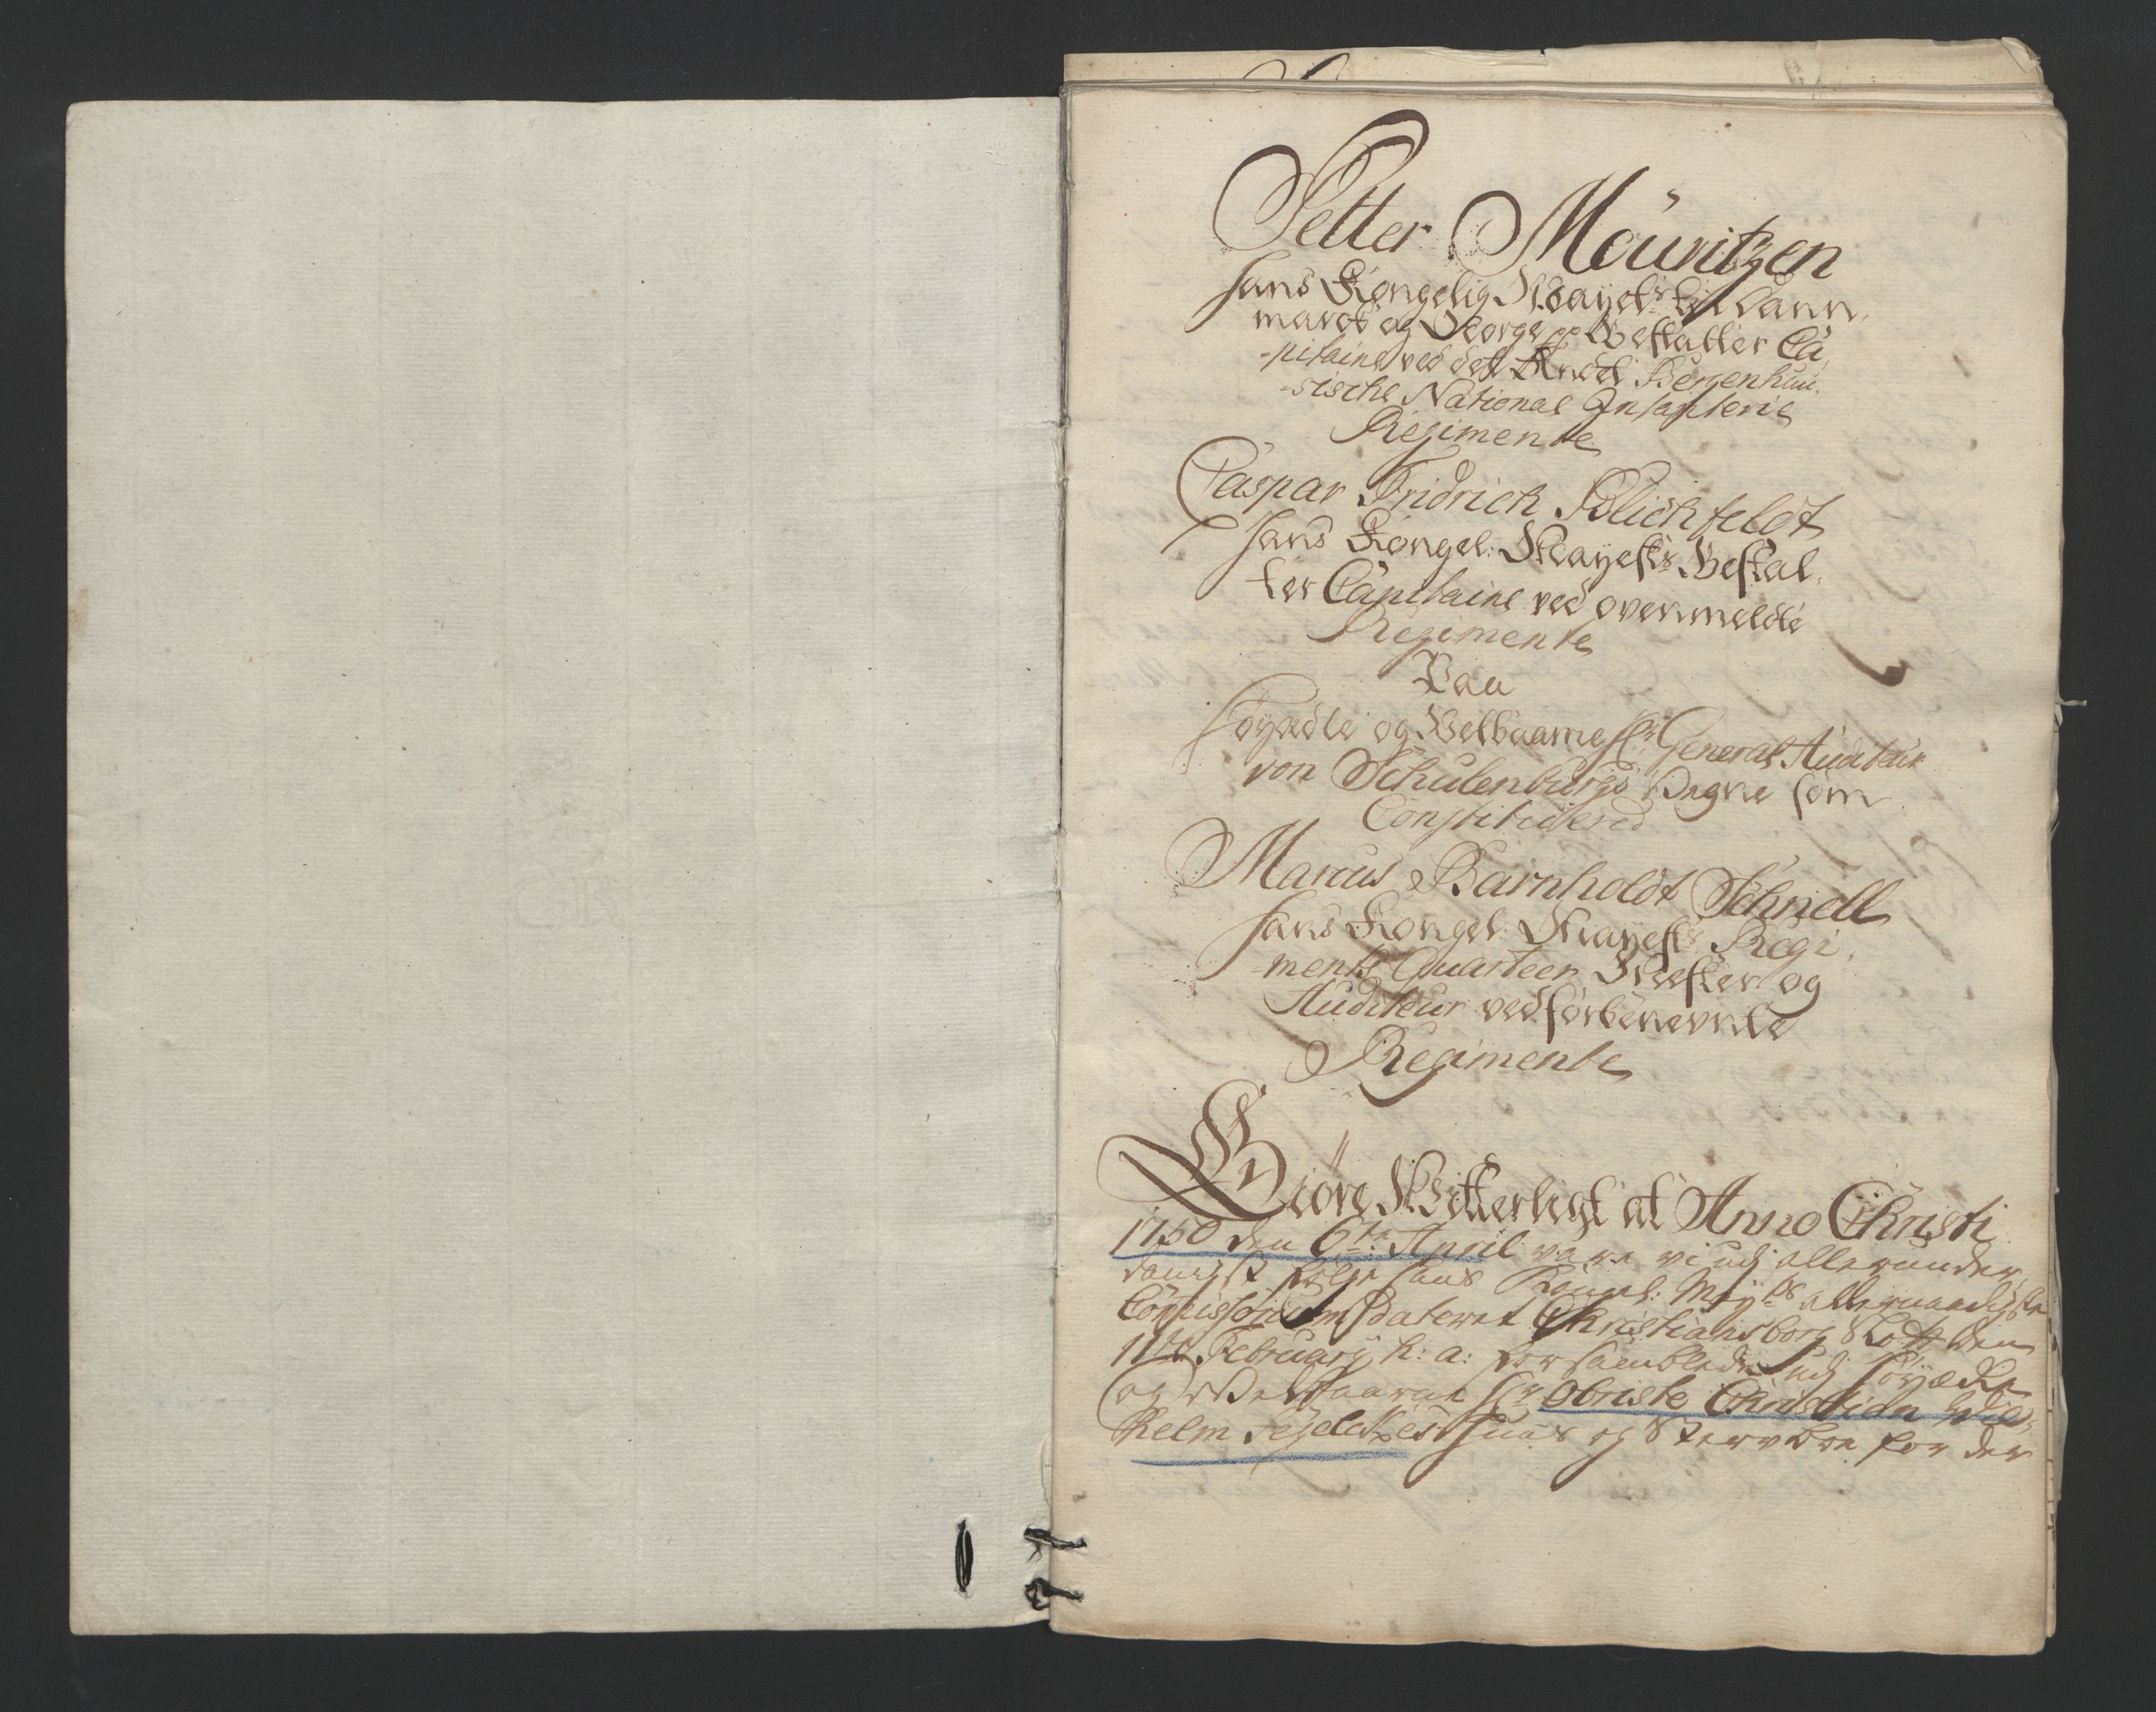 Petter Mouritzen
Hans Kongelig Mayets til Dann,
march og Norge pp Bestalter Ca,
-pitaine ved det Andet Bergenhuu,
-sische National Infanterie
Regimente
Caspar Fridrich Blichfeldt
Hans Kongel: Mayests Bestal,
ter Capitaine ved overmeldte
Regimente
Paa
Høyædle og Velbaarne Hr General Auditeur
von Schulenburgs Vegne som
Constituered
Marcus Barnholdt Schnell
Hans Kongel: Mayests Regi,
-ments Quarteer Mester og
Auditeur ved forbenevnte
Regimente
Giøre Witterligt at Anno Christi
1750 den 6te April vare vi udj allerunder,
danigst følge Hans Kongel: Mayts allernaadigste
Commissorium dateret Christiansborg Slott den
February h: a: forsamblede udj Høyædle
og Velbaarne Hr Obriste Christian Wil,
helm Segelckes Huus og Sterboe for der